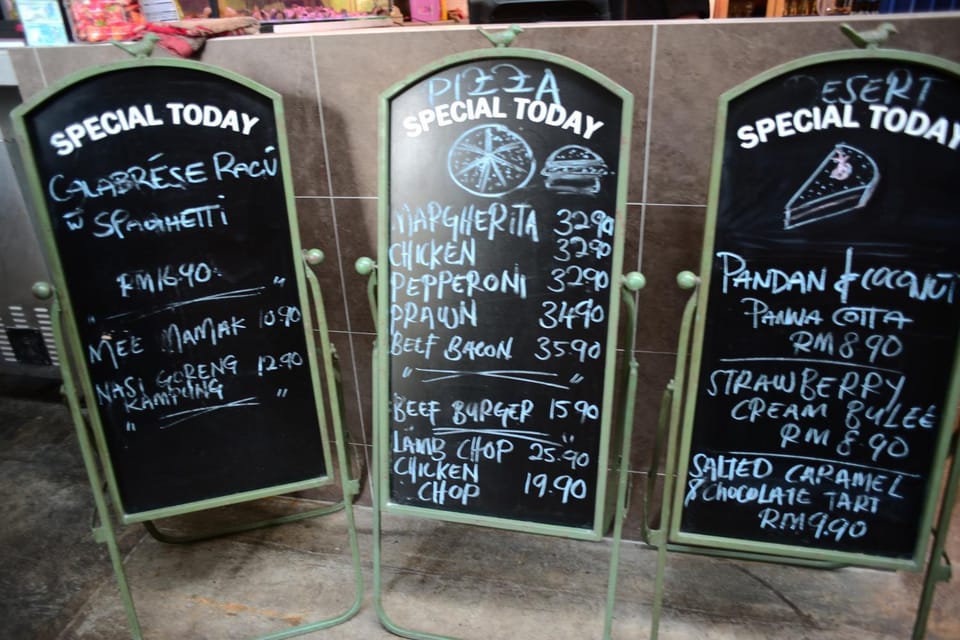 SPECIAL TODAY
CALABRÉSE RAGÚ
W SPAGHETTI
RM16.90
MEE MAMAK 10.90
NASI GORENG 12.90
KAMPUNG
PIZZA
SPECIAL TODAY
MARGHERITA 3290
CHICKEN 3290
PEPPERONI 3290
PRAWN 3490
BEEF BACON 35.90
BEEF BURGER 15 90
LAMB CHOP 25.90
CHICKEN
CHOP 19.90
DESERT
SPECIAL TODAY
PANDAN & COCONUT
PANNA COTTA
RM 8 90
STRAWBERRY
CREAM BULEÉ
RM 8.90
SALTED CARAMEL
& CHOCOLATE TART
RM9.90